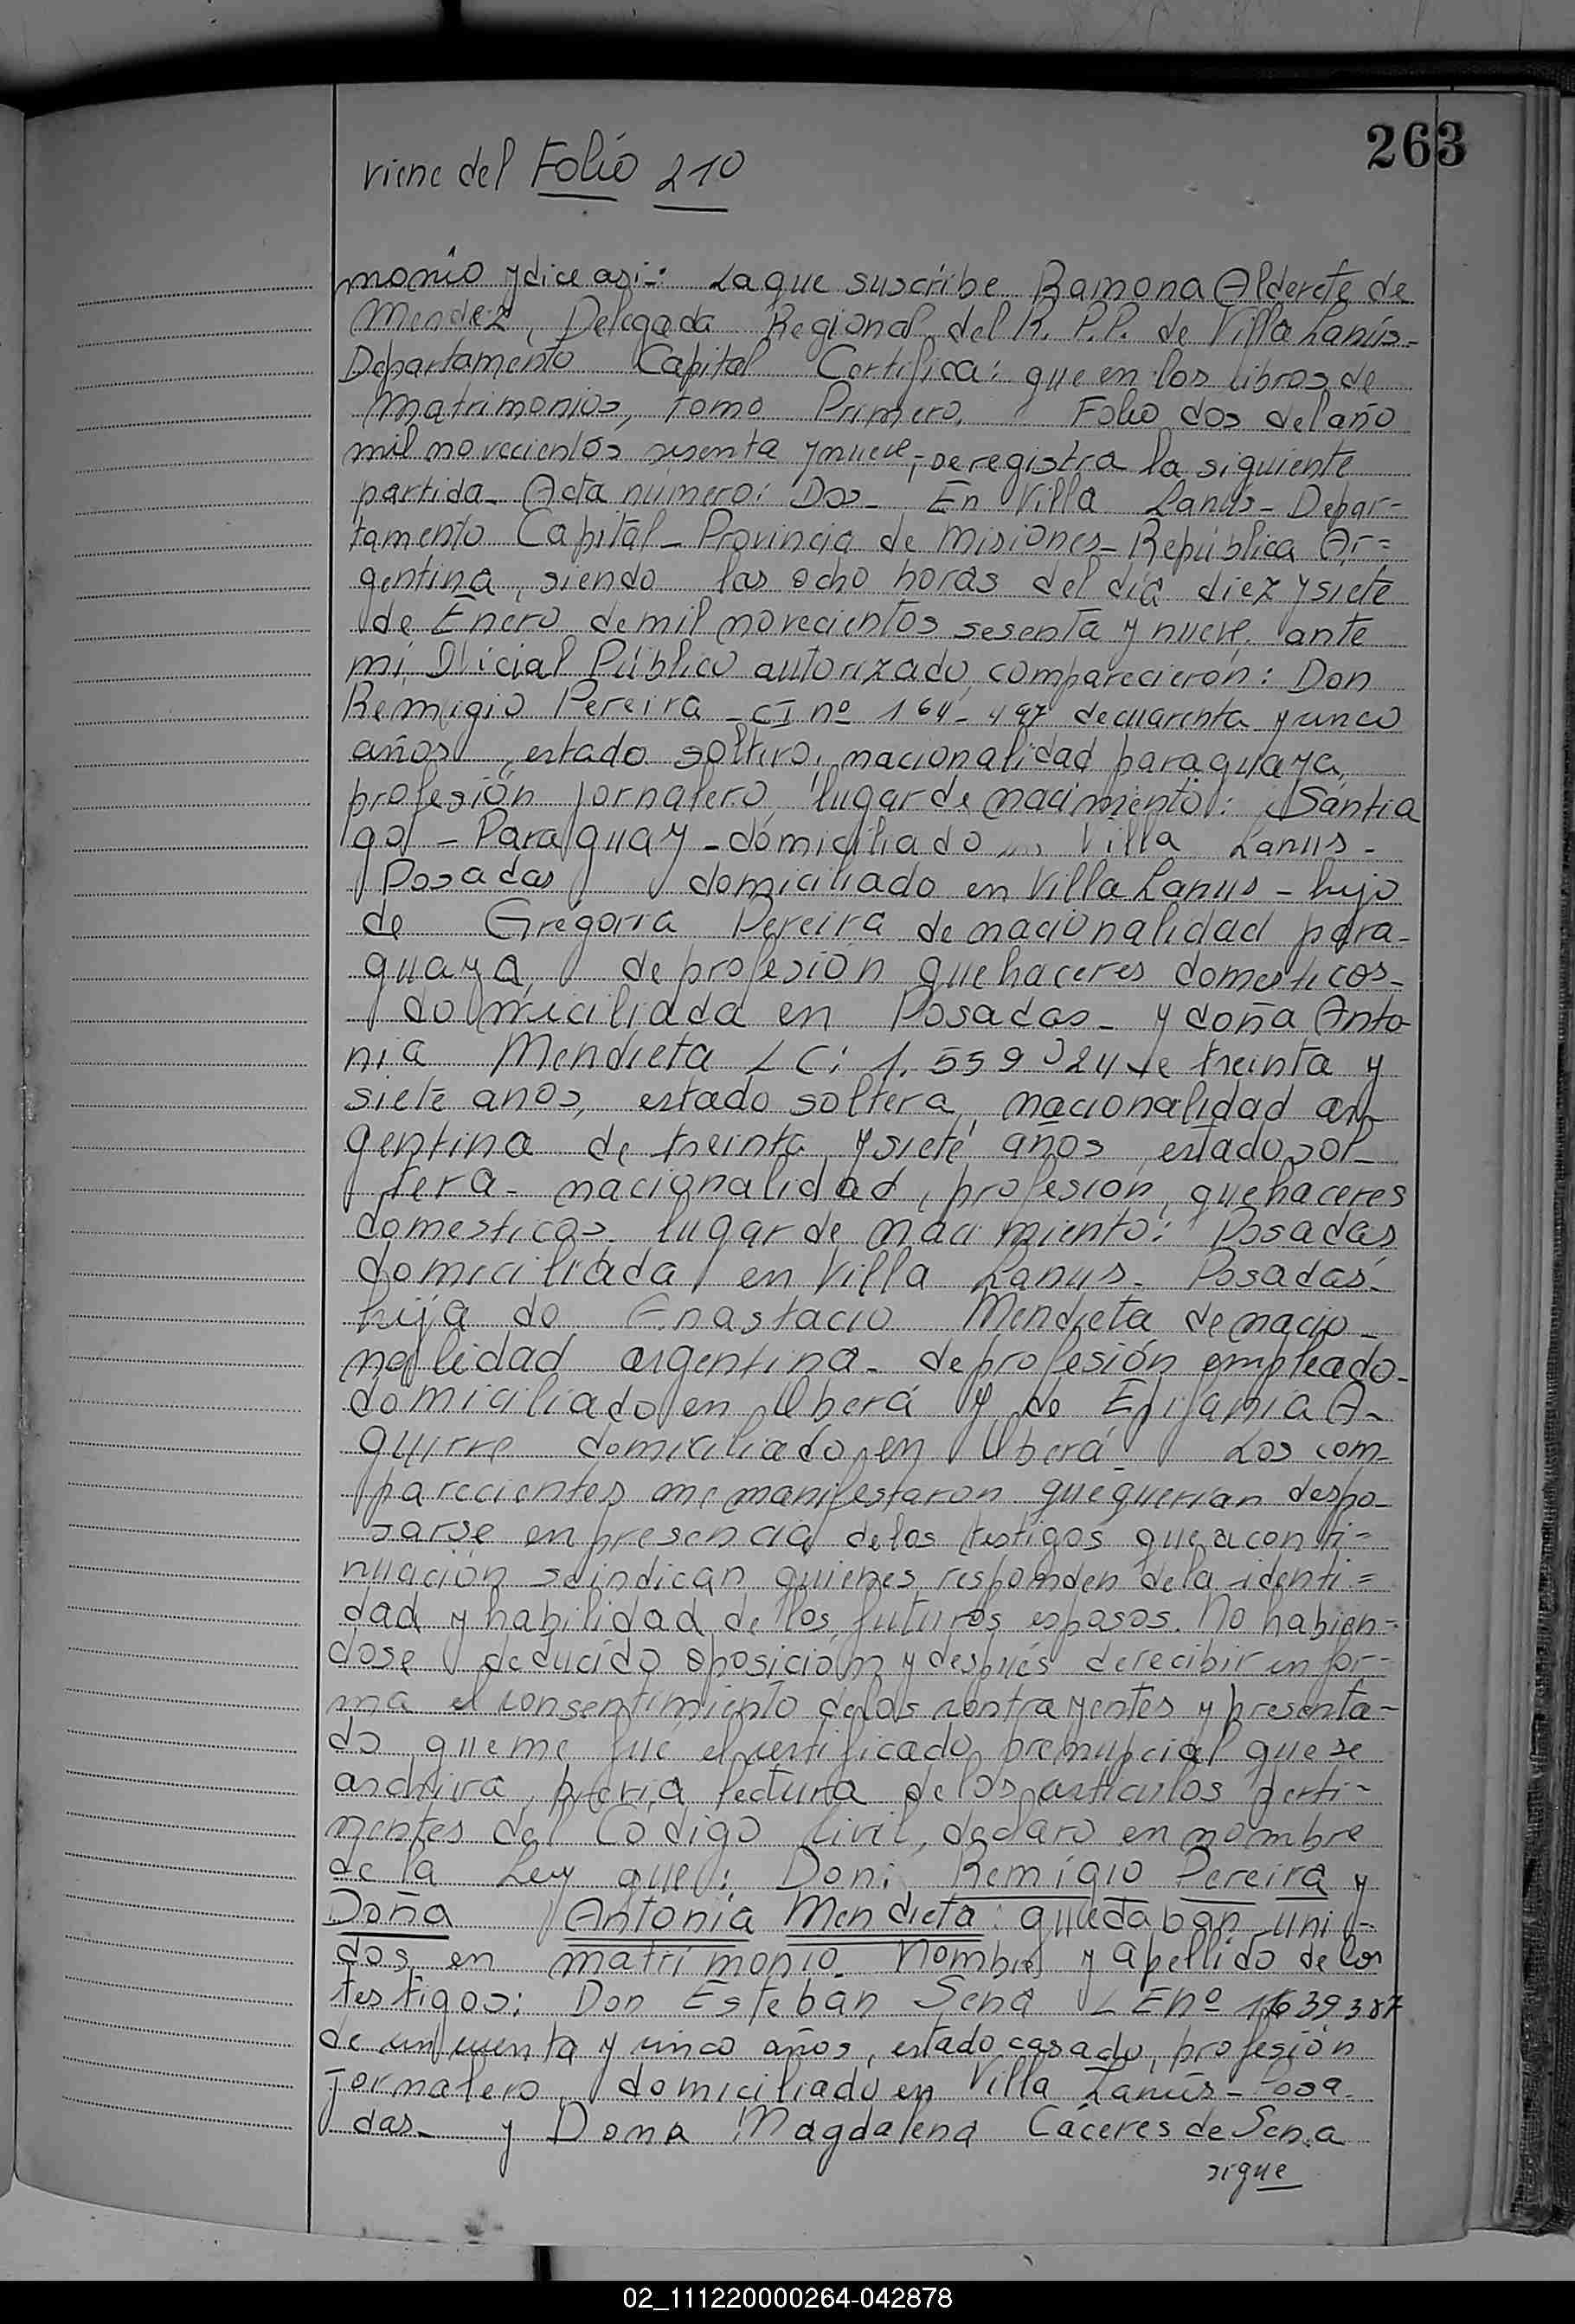 263
viene del Folio 210
monio y dice asi-: La que suscribe Ramona Alderete de
Mendez, Delegada Regional del R. P.P. de Villa Lanús-
Departamento Capital Certifica: que en los libros de
Matrimonios, tomo Primero. Folio dos del año
mil novecientos sesenta y nueve, se registra la siguiente
partida- Acta número: Dos- En Villa Lanus- Depar-
tamento Capital- Provincia de Misiones- República Ar=
gentina, siendo las ocho horas del día diez y siete
de Enero de mil novecientos sesenta y nueve. ante
mí Oficial Público autorizado, comparecieron: Don
Remigio Pereira - CI nº 164-497 de cuarenta y cinco
años, estado soltero, nacionalidad paraguaya,
profesión jornalero, lugar de nacimiento: Santia
go - Paraguay - domiciliado Villa Lanus -
Posadas domiciliado en Villa Lanus - hijo
de Gregoria Pereira de nacionalidad para-
guaya, de profesión quehaceres domesticos-
domiciliada en Posadas- y doña Anto-
nia Mendieta LC: 1.559 024 de treinta y
siete anos, estado soltera, nacionalidad ar-
gentina de treinta y siete años, estado sol-
tera- nacionalidad, profesion, quehaceres
domesticos. lugar de nacimiento: Posadas
domiciliada en Villa Lanus- Posadas-
hija de Anastacio Mendieta de nacio-
nalidad argentina- de profesión empleado-
domiciliado en Oberá y de Epifania A-
guirre domiciliado en Oberá- Los com-
parecientes me manifestaron que querian despo-
sarse en presencia de los testigos que a conti=
nuación se indican quienes responden de la identi=
dad y habilidad de los futuros esposos. No habien=
dose deducido oposición y después de recibir en for-
ma el consentimiento de los contrayentes y presenta-
do que me fue el certificado prenupcial que se
archiva, previa lectura de los articulos perti-
nentes del Codigo Civil, declaro en nombre
de la Ley que: Don: Remigio Pereira y
Doña Antonia Mendieta: quedaban uni-
dos en matrimonio. Nombre y apellido de los
testigos: Don Esteban Sena LE nº 1639387
de cincuenta y cinco años, estado casado, profesión
Jornalero, domiciliado en Villa Lanús- Posa-
das- y Dona Magdalena Cáceres de Sena
sigue
02_111220000264-042878